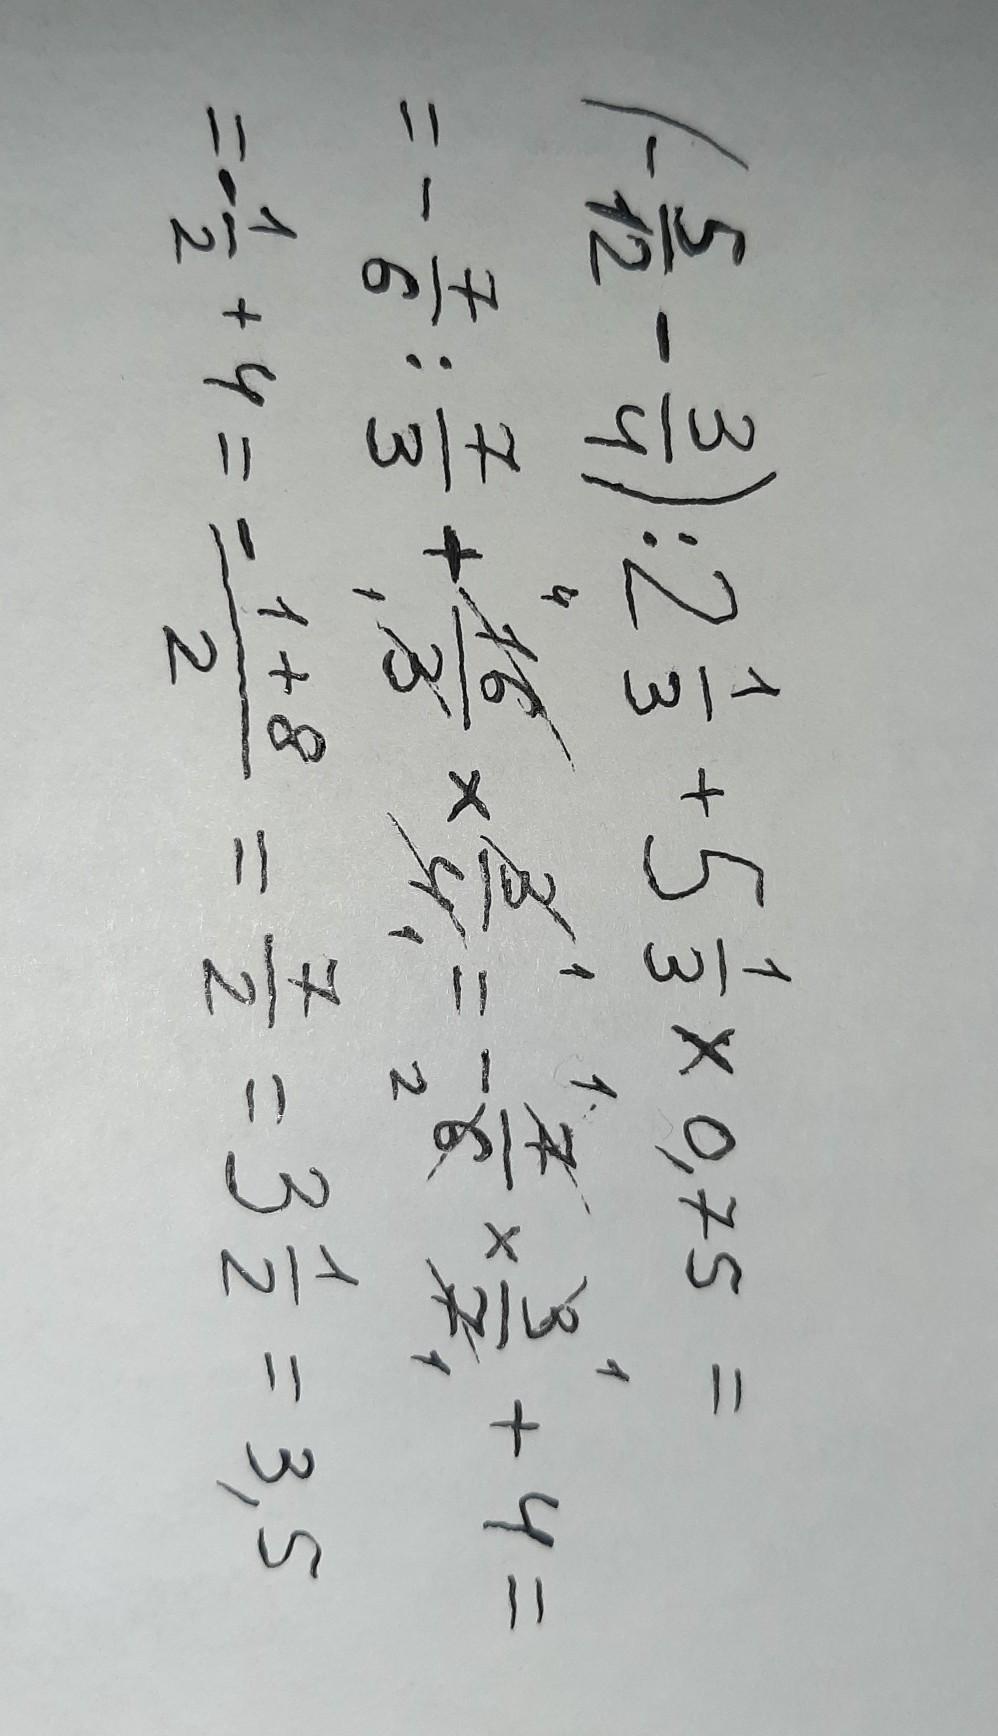 (-5/12 - 3/4) : 2 1/3 + 5 1/3 × 0,75 =
= - 7/6 : 7/3 + 16/3 × 3/4 = - 7/6 × 3/7 + 4 =
= - 1/2 + 4 = -1+8/2 = 7/2 = 3 1/2 = 3,5